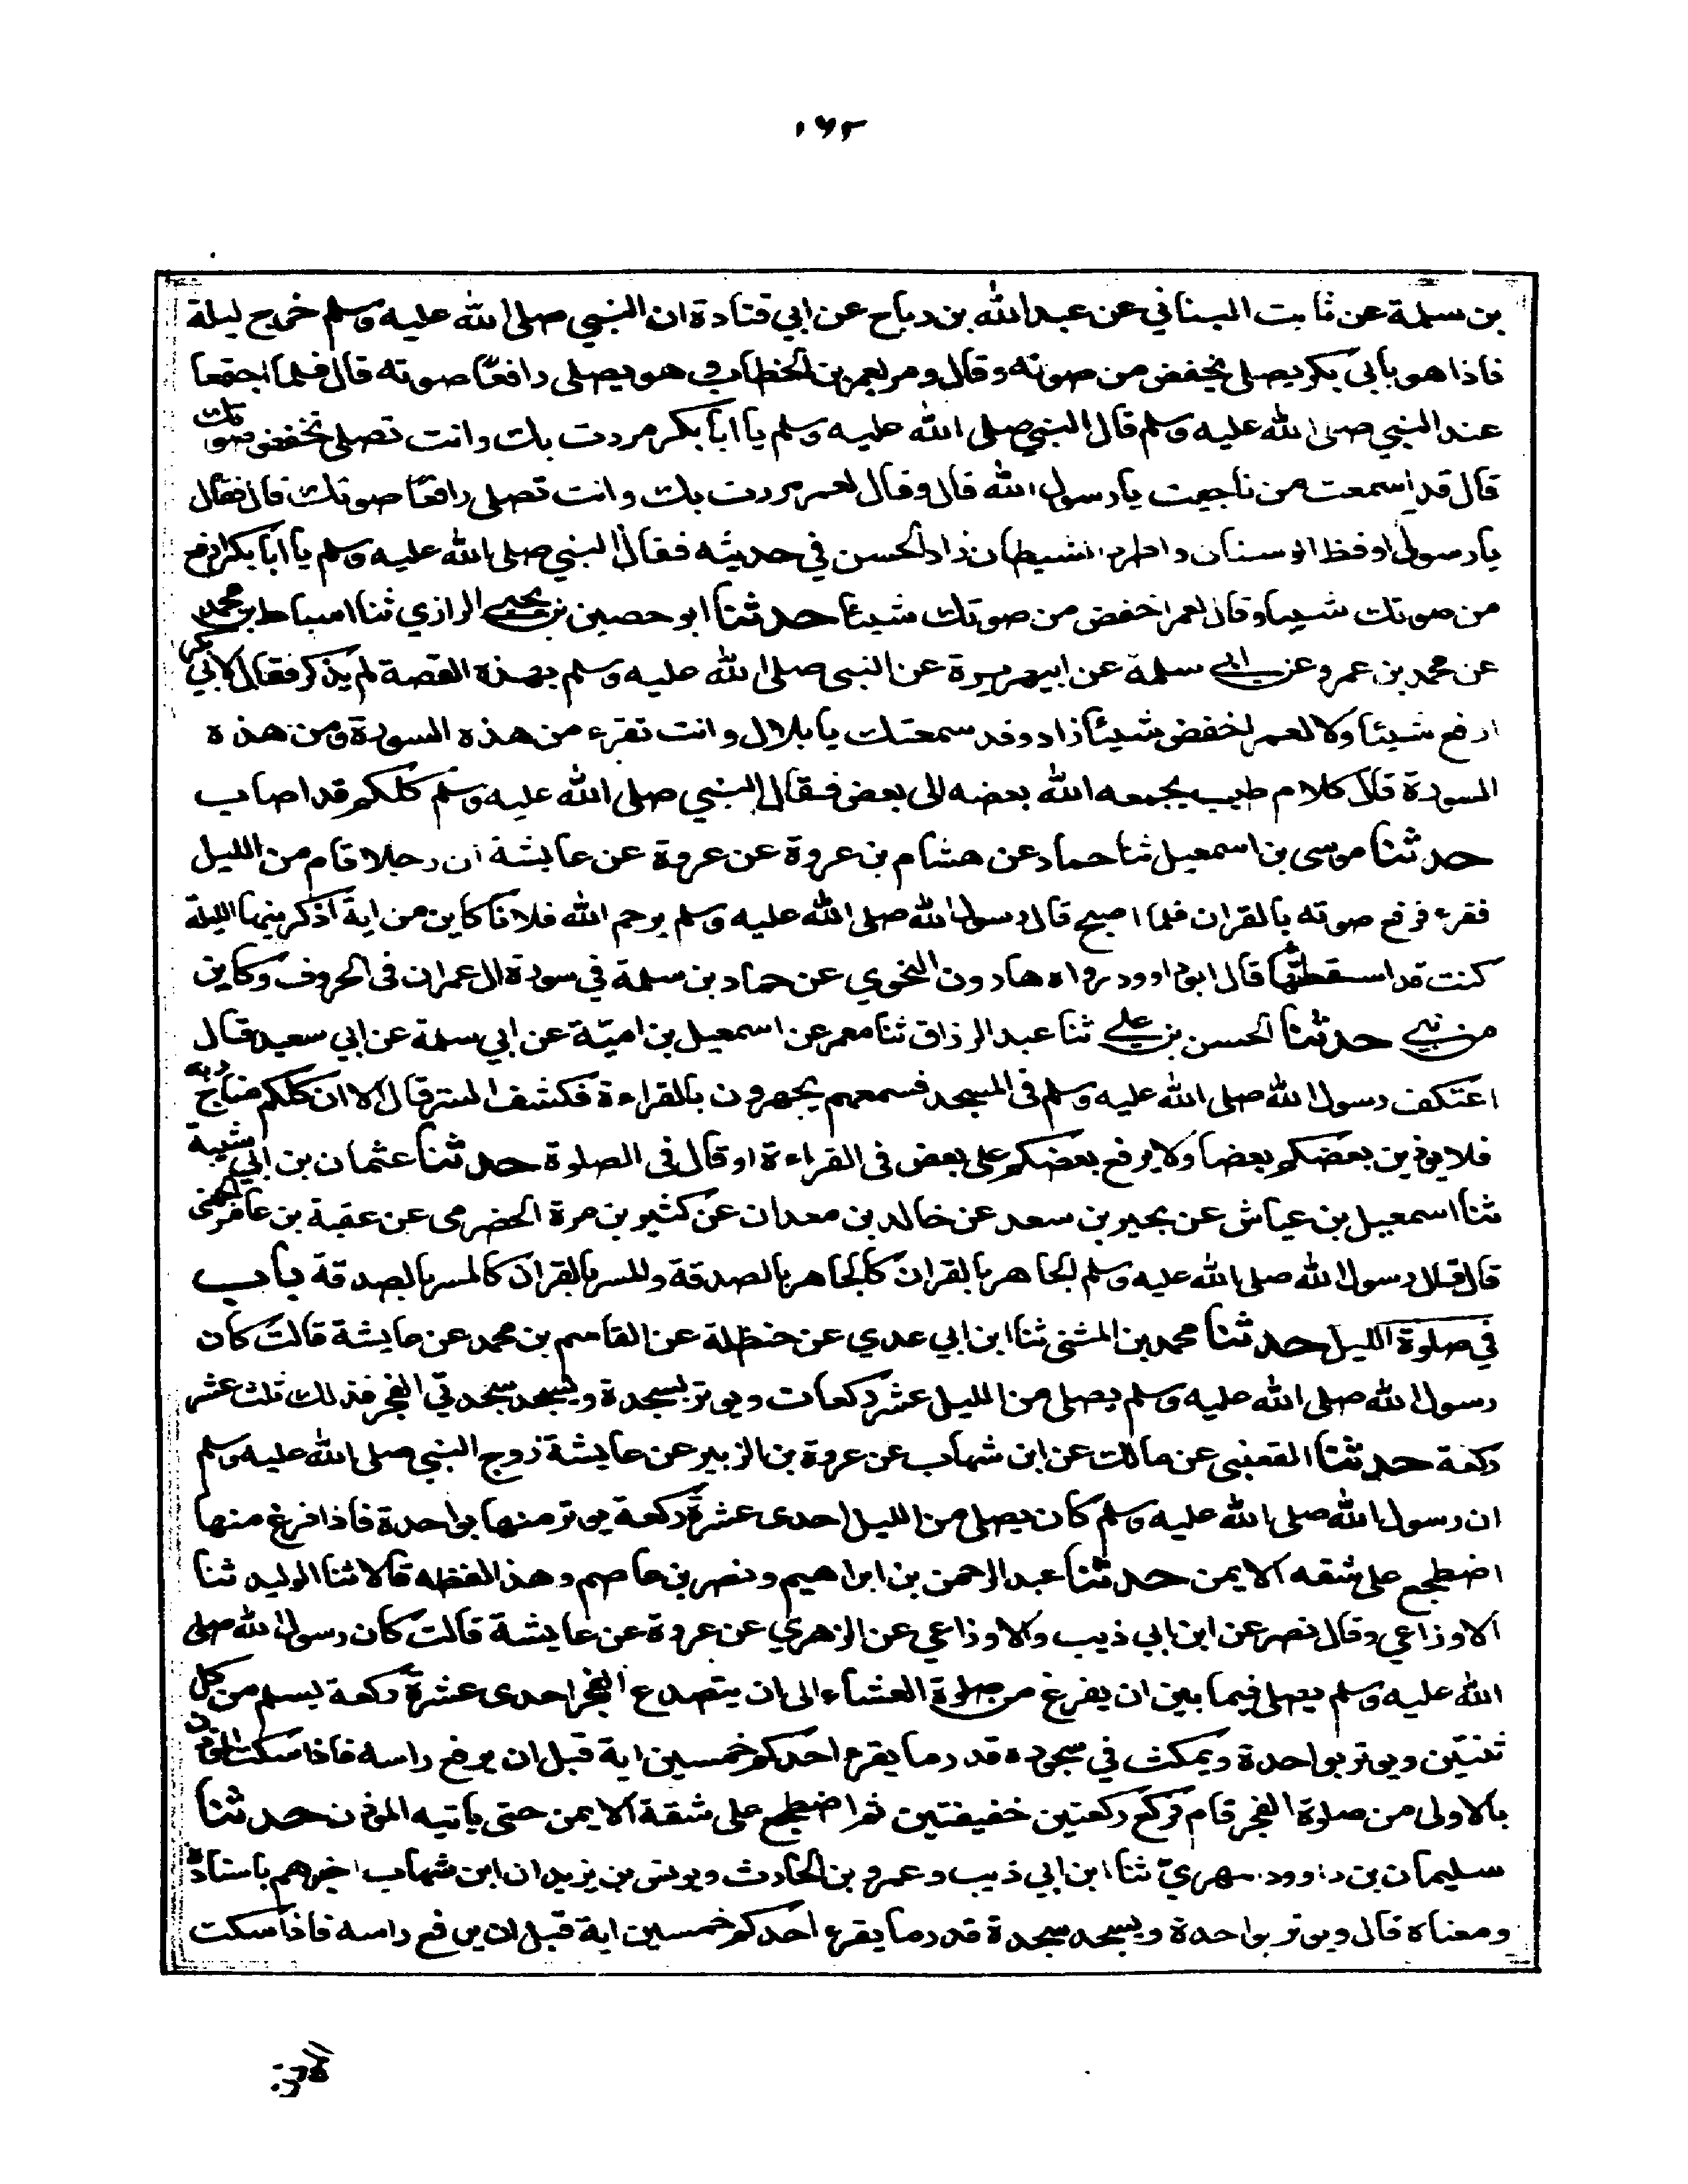 ١٦٢
بن سلمة عن ثابت البناني عن عبد الله بن رباح عن ابي قتادة ان النبي صلى الله عليه وسلم خرج ليلة
فاذا هو بابي بكر يصلي يخفض من صوته وقال ومر بعمر بن الخطاب وهو يصلي رافعا صوته قال فلما اجتمعا
عند النبي صلى الله عليه وسلم قال النبي صلى الله عليه وسلم يا ابا بكر مررت بك وانت تصلي تخفض صوتك
قال قد اسمعت من ناجيت يا رسول الله قال وقال لعمر مررت بك وانت تصلي رافعا صوتك قال فقال
يا رسول اوقظ الوسنان واطرد الشيطان زاد الحسن في حديثه فقال النبي صلى الله عليه وسلم يا ابا بكر ارفع
من صوتك شيئا وقال لعمر اخفض من صوتك شيئا حدثنا ابو حصين بن يحيى الرازي ثنا اسباط بن محمد
عن محمد بن عمرو عن ابي سلمة عن ابي هريرة عن النبي صلى الله عليه وسلم بهذه القصة لم يذكر فقال لابي بكر
ارفع شيئا ولا لعمر اخفض شيئا زاد وقد سمعتك يا بلال وانت تقرء من هذه السورة ومن هذه
السورة قال كلام طيب يجمعه الله بعضه الى بعض فقال النبي صلى الله عليه وسلم كلكم قد اصاب
حدثنا موسى بن اسمعيل ثنا حماد عن هشام بن عروة عن عروة عن عايشة ان رجلا قام من الليل
فقرء فرفع صوته بالقران فلما اصبح قال رسول الله صلى الله عليه وسلم يرحم الله فلانا كاين من اية اذكرنيها الليلة
كنت قد اسقطتها قال ابو داوود رواه هارون النحوي عن حماد بن سلمة في سورة ال عمران في الحروف وكاين
من نبي حدثنا الحسن بن علي ثنا عبد الرزاق ثنا معمر عن اسمعيل بن امية عن ابي سلمة عن ابي سعيد قال
اعتكف رسول الله صلى الله عليه وسلم في المسجد فسمعهم يجهرون بالقراءة فكشف الستر قال الا ان كلكم مناج ربه
فلا يوذين بعضكم بعضا ولا يرفع بعضكم على بعض في القراءة او قال في الصلوة حدثنا عثمان بن ابي شيبة
ثنا اسمعيل بن عياش عن بحير بن سعد عن خالد بن معدان عن كثير بن مرة الحضرمي عن عقبة بن عامر الجهني
قال قال رسول الله صلى الله عليه وسلم الجاهر بالقران كالجاهر بالصدقة والمسر بالقران كالمسر بالصدقة باب
في صلوة الليل حدثنا محمد بن المثنى ثنا ابن ابي عدي عن حنظلة عن القاسم بن محمد عن عايشة قالت كان
رسول الله صلى الله عليه وسلم يصلي من الليل عشر ركعات ويوتر بسجدة ويسجد سجدتي الفجر فذلك ثلث عشر
ركعة حدثنا القعنبي عن مالك عن ابن شهاب عن عروة بن الزبير عن عايشة زوج النبي صلى الله عليه وسلم
ان رسول الله صلى الله عليه وسلم كان يصلي من الليل احدى عشرة ركعة يوتر منها بواحدة فاذا فرغ منها
اضطجع على شقه الايمن حدثنا عبد الرحمن بن ابراهيم ونصر بن عاصم وهذا لفظه قالا ثنا الوليد ثنا
الاوزاعي وقال نصر عن ابن ابي ذيب والاوزاعي عن الزهري عن عروة عن عايشة قالت كان رسول الله صلى
الله عليه وسلم يصلي فيما بين ان يفرغ من صلوة العشاء الى ان يتصدع الفجر احدى عشرة ركعة يسلم من كل
ثنتين ويوتر بواحدة ويمكث في سجوده قدر ما يقرء احدكم خمسين اية قبل ان يرفع راسه فاذا سكت الموذن
بالاولى من صلوة الفجر قام فركع ركعتين خفيفتين ثم اضطجع على شقة الايمن حتى ياتيه الموذن حدثنا
سليمان بن داوود المهري ثنا ابن ابي ذيب وعمرو بن الحارث ويونس بن يزيد ان ابن شهاب اخبرهم باسناده
ومعناه قال ويوتر بواحدة ويسجد سجدة قدر ما يقرء احدكم خمسين اية قبل ان يرفع راسه فاذا سكت